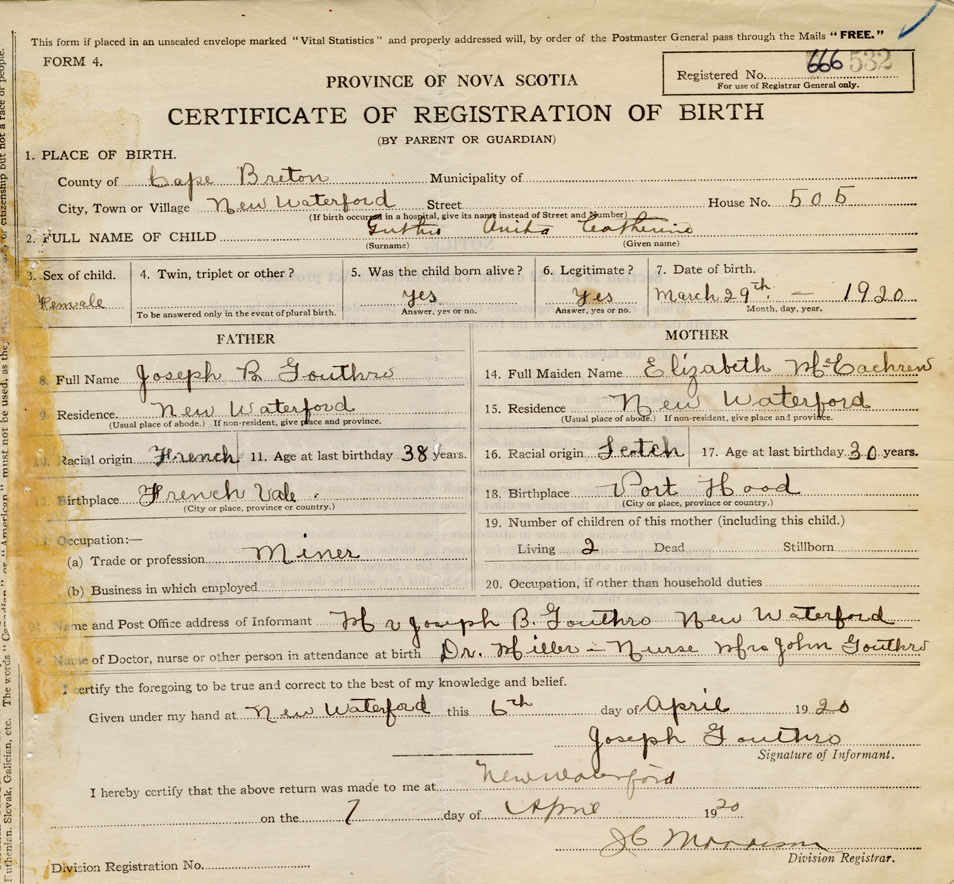 This form if placed in an unsealed envelope marked "Vital Statistics" and properly addressed will, by order of the Postmaster General pass through the Mails "FREE."
FORM 4.
Registered No. 666 532
For use of Registrar General only.
PROVINCE OF NOVA SCOTIA
CERTIFICATE OF REGISTRATION OF BIRTH
(BY PARENT OR GUARDIAN)
1. PLACE OF BIRTH.
County of Cape Breton Municipality of
City, Town or Village New Waterford Street House No. 505
(If birth occurred in a hospital, give its name instead of Street and Number)
2. FULL NAME OF CHILD Guthro Anita Catherine
(Surname) (Given name)
3. Sex of child. Female
4. Twin, triplet or other?
To be answered only in the event of plural birth.
5. Was the child born alive? yes
Answer, yes or no.
6. Legitimate? Yes
Answer, yes or no.
7. Date of birth. March 29th. – 1920
Month, day, year.
FATHER
8. Full Name Joseph B. Gouthro
9. Residence New Waterford
(Usual place of abode.) If non-resident, give place and province.
10. Racial origin French 11. Age at last birthday 38 years.
12. Birthplace French Vale.
(City or place, province or country.)
13. Occupation:—
(a) Trade or profession Miner
(b) Business in which employed
MOTHER
14. Full Maiden Name Elizabeth McEachren
15. Residence New Waterford
(Usual place of abode.) If non-resident, give place and province.
16. Racial origin Scotch 17. Age at last birthday 30 years.
18. Birthplace Port Hood
(City or place, province or country.)
19. Number of children of this mother (including this child.)
Living 2 Dead Stillborn
20. Occupation, if other than household duties
21. Name and Post Office address of Informant Mr Joseph B. Gouthro New Waterford
22. Name of Doctor, nurse or other person in attendance at birth Dr. Miller – Nurse Mrs John Gouthro
I certify the foregoing to be true and correct to the best of my knowledge and belief.
Given under my hand at New Waterford this 6th day of April 1920
Joseph Gouthro
Signature of Informant.
I hereby certify that the above return was made to me at New Waterford
on the 7 day of April 1920
JC Morrison
Division Registrar.
Division Registration No.
citizenship but not a race or people.
"American" must not be used, as the
The words "Canadian" or
Ruthenian, Slovak, Galician, etc.